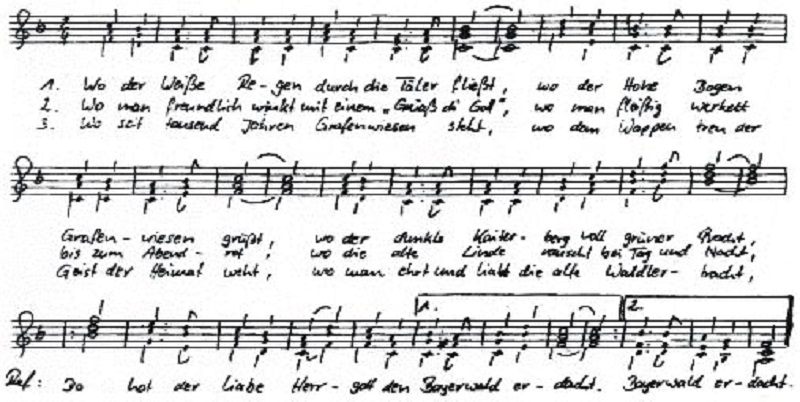 1. Wo der Weiße Re-gen durch die Täler fließt, wo der Hohe Bogen
2. Wo man freundlich winkt mit einem „Grüaß di God", wo man fleißig werkelt
3. Wo seit tausend Jahren Grafenwiesen steht, wo dem Wappen treu der
Grafen-wiesen grüßt, wo der dunkle Kaiter-berg voll grüner Pracht,
bis zum Abend-rot, wo die alte Linde rauscht bei Tag und Nacht,
Geist der Heimat weht, wo man ehrt und liebt die alte Waldler-tracht,
1. 2.
Ref: Do hot der liabe Herr-gott den Bayerwald er-dacht. Bayerwald er-dacht.